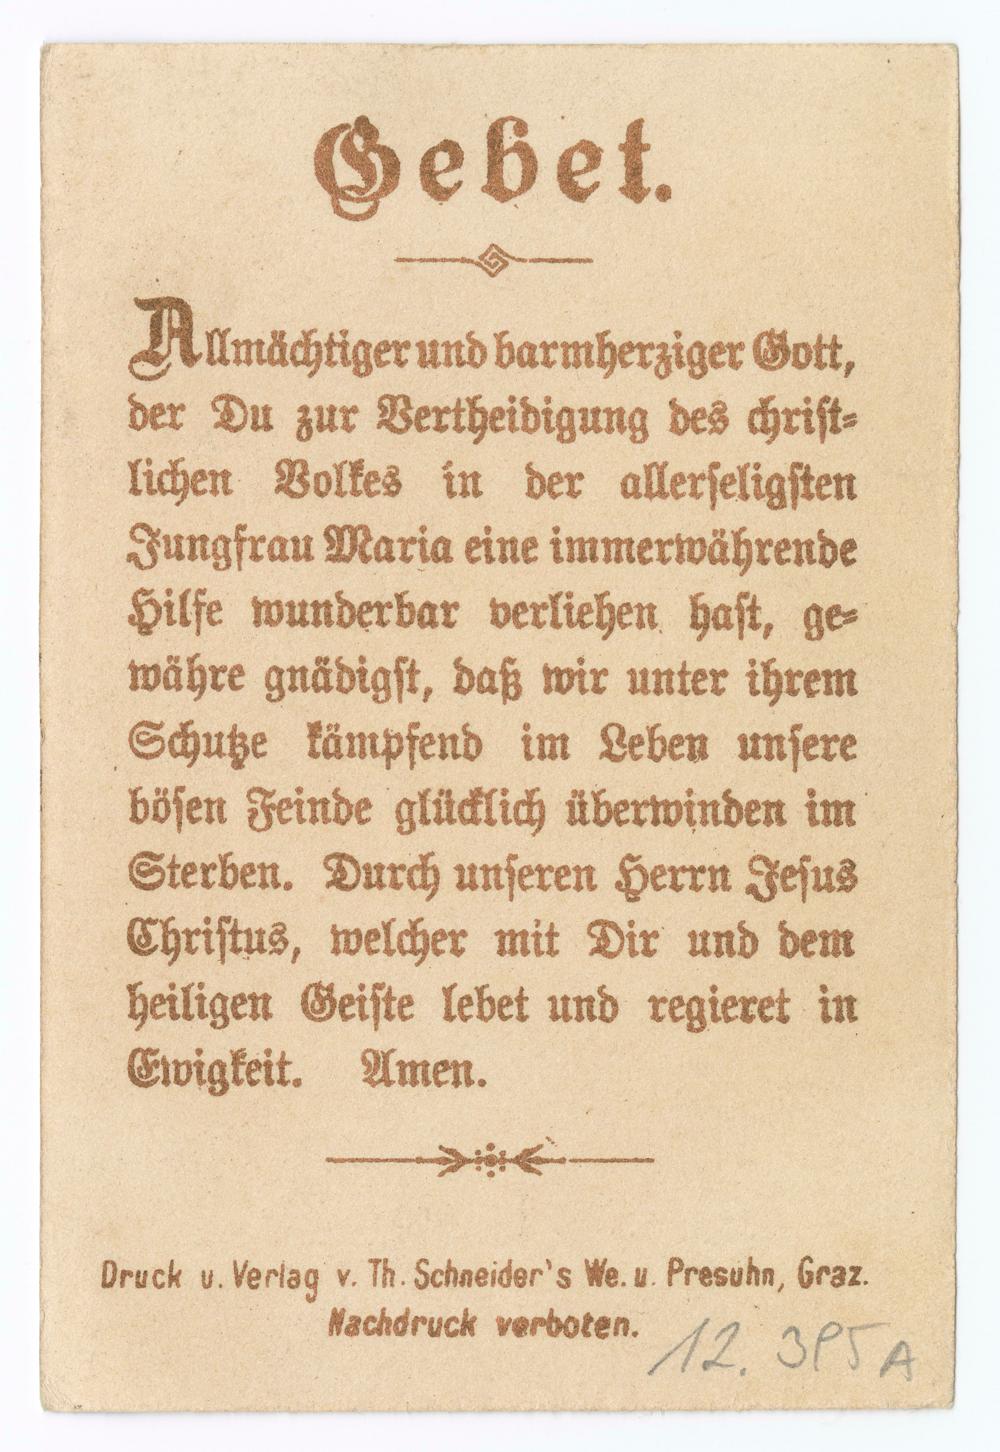 Gebet.
Allmächtiger und barmherziger Gott,
der Du zur Vertheidigung des christ-
lichen Volkes in der allerseligsten
Jungfrau Maria eine immerwährende
Hilfe wunderbar verliehen hast, ge-
währe gnädigst, daß wir unter ihrem
Schutze kämpfend im Leben unsere
bösen Feinde glücklich überwinden im
Sterben. Durch unseren Herrn Jesus
Christus, welcher mit Dir und dem
heiligen Geiste lebet und regieret in
Ewigkeit. Amen.
Druck u. Verlag v. Th. Schneider's We. u. Presuhn, Graz.
Nachdruck verboten.
12. 395 A